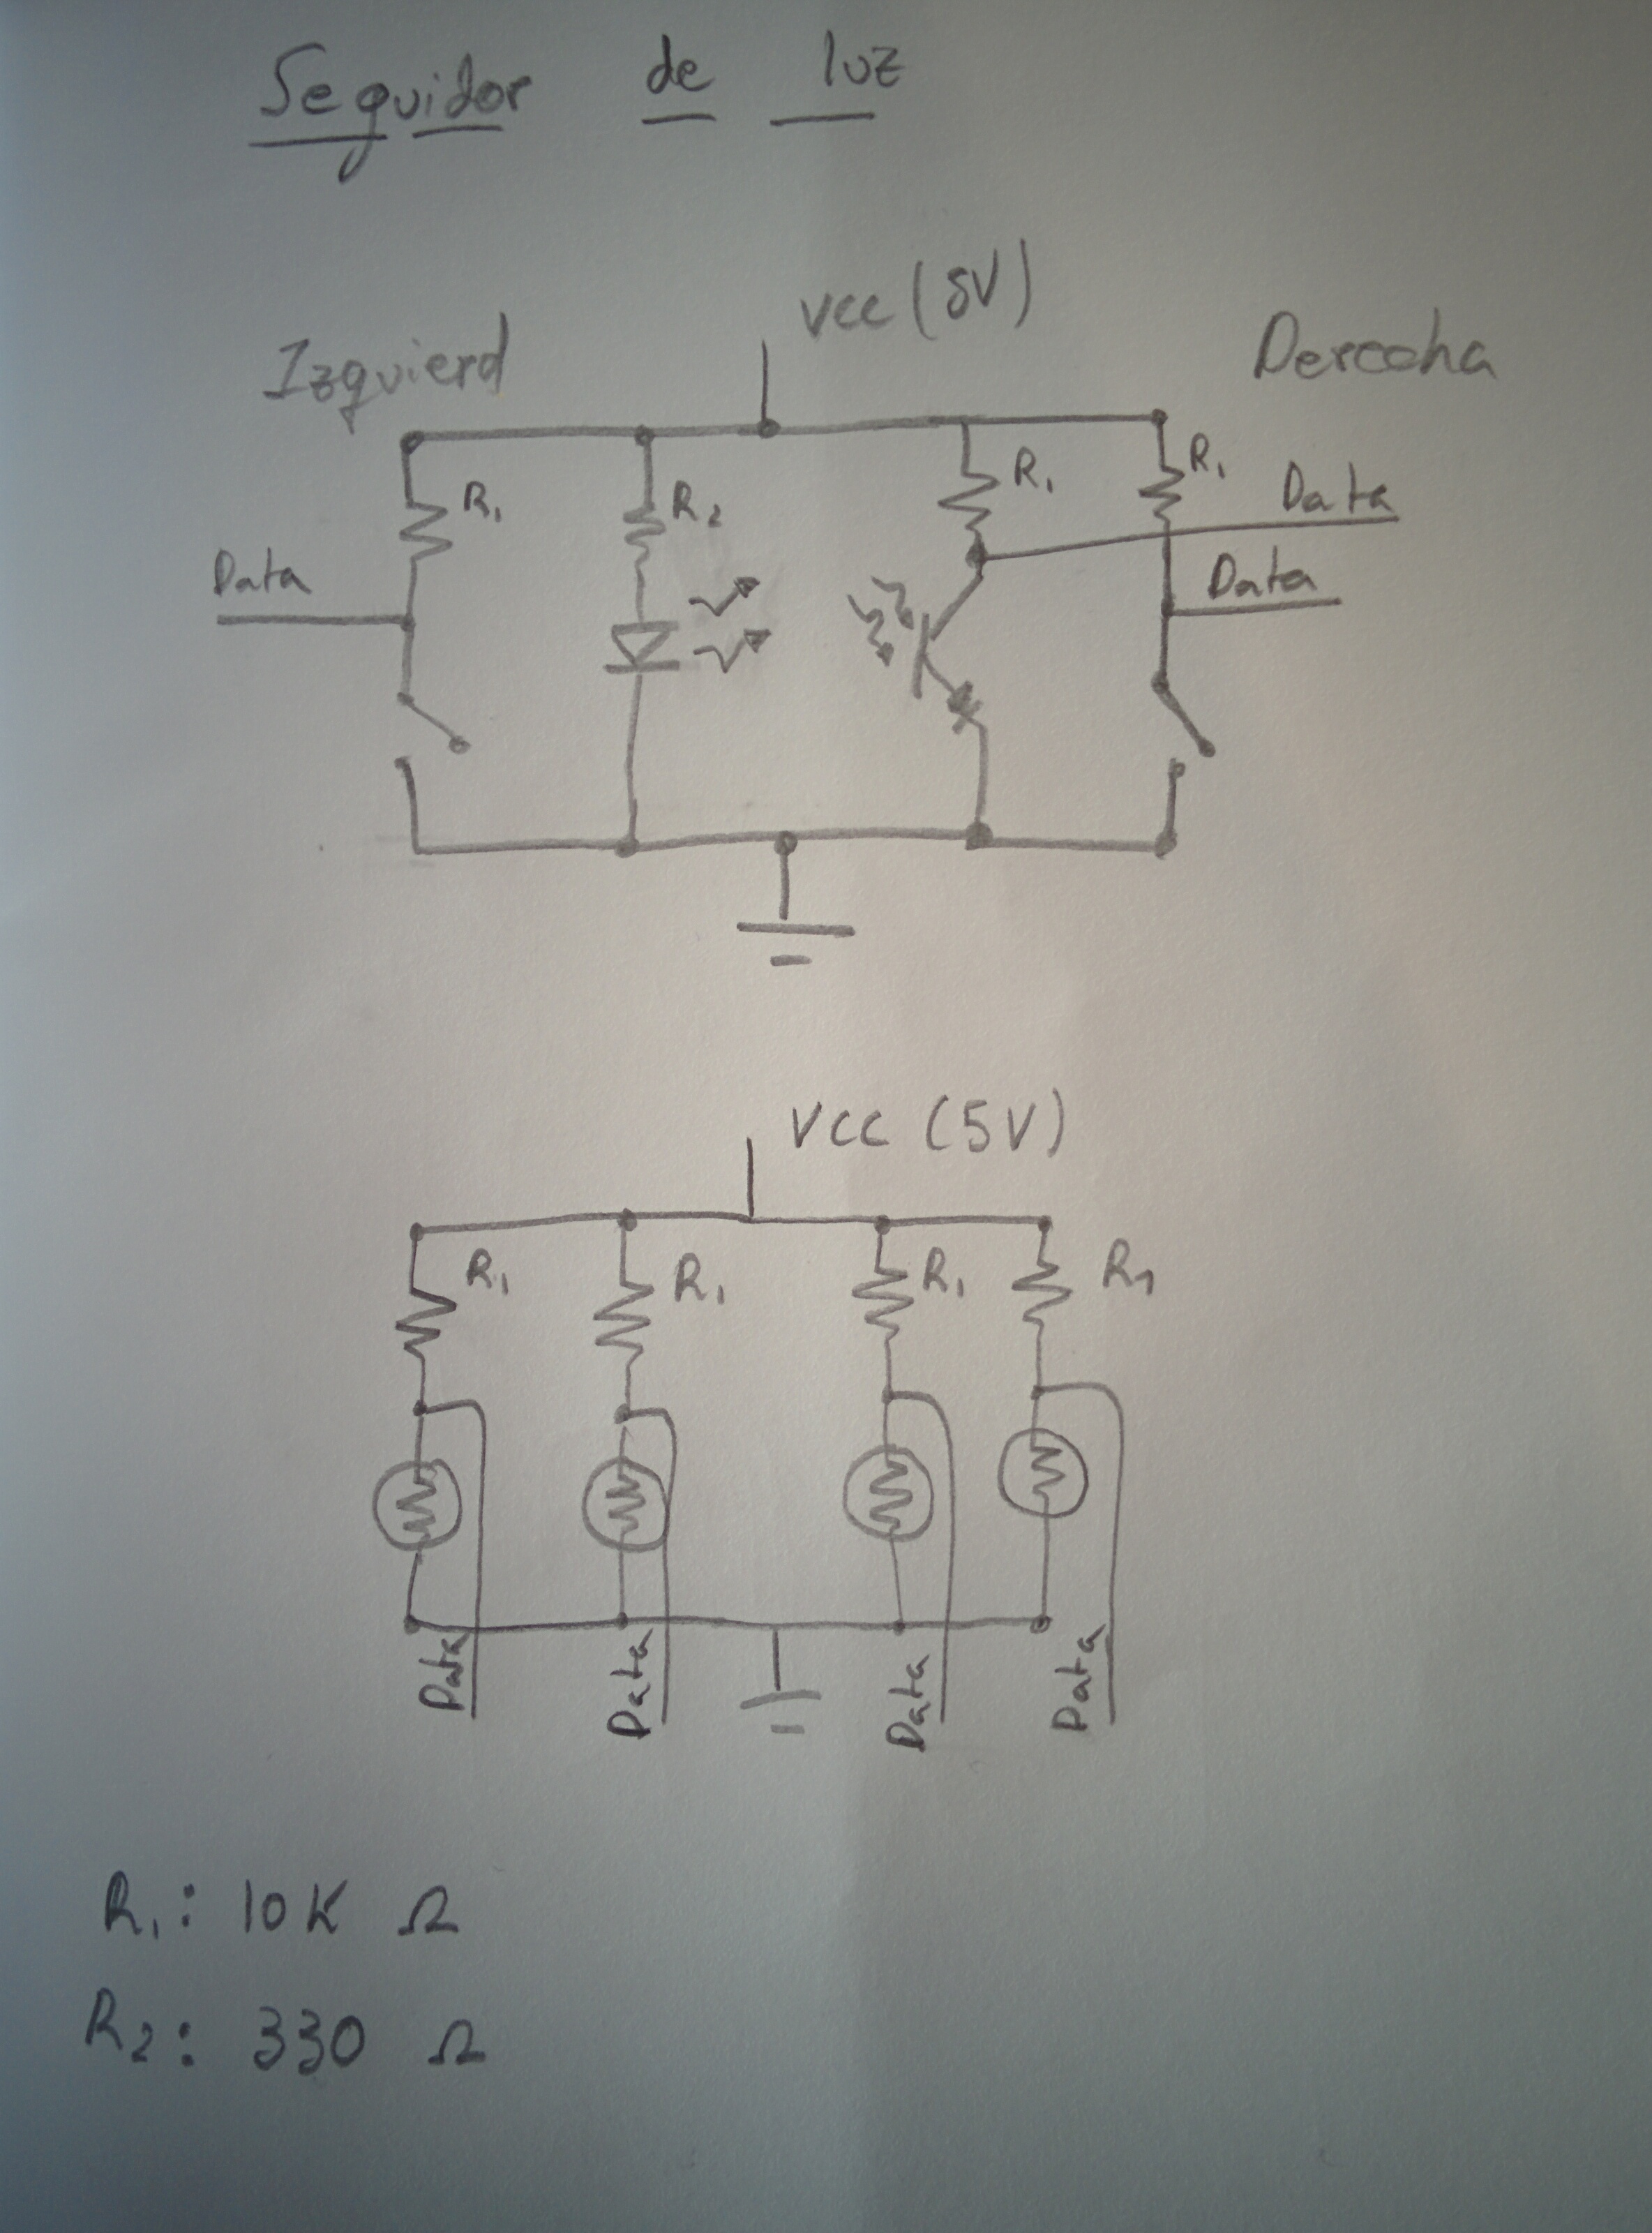 Seguidor de luz
Vcc (5V)
Izquierd
Derecha
R1
R2
R1
R1
Data
Data
Data
Vcc (5V)
R1
R1
R1
R1
Data
Data
Data
Data
R1: 10K Ω
R2: 330 Ω